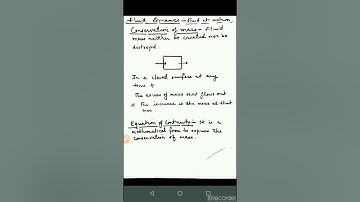 Fluid Dynamics :- Fluid at motion
Conservation of mass - fluid
mass neither be created nor be
destroyed.
In a closed surface at any
time t
The excess of mass that flows out
= The increase at the mass at that
time
Equation of Continuity :- It is a
mathematical form to express the
conservation of mass.
XRecorder